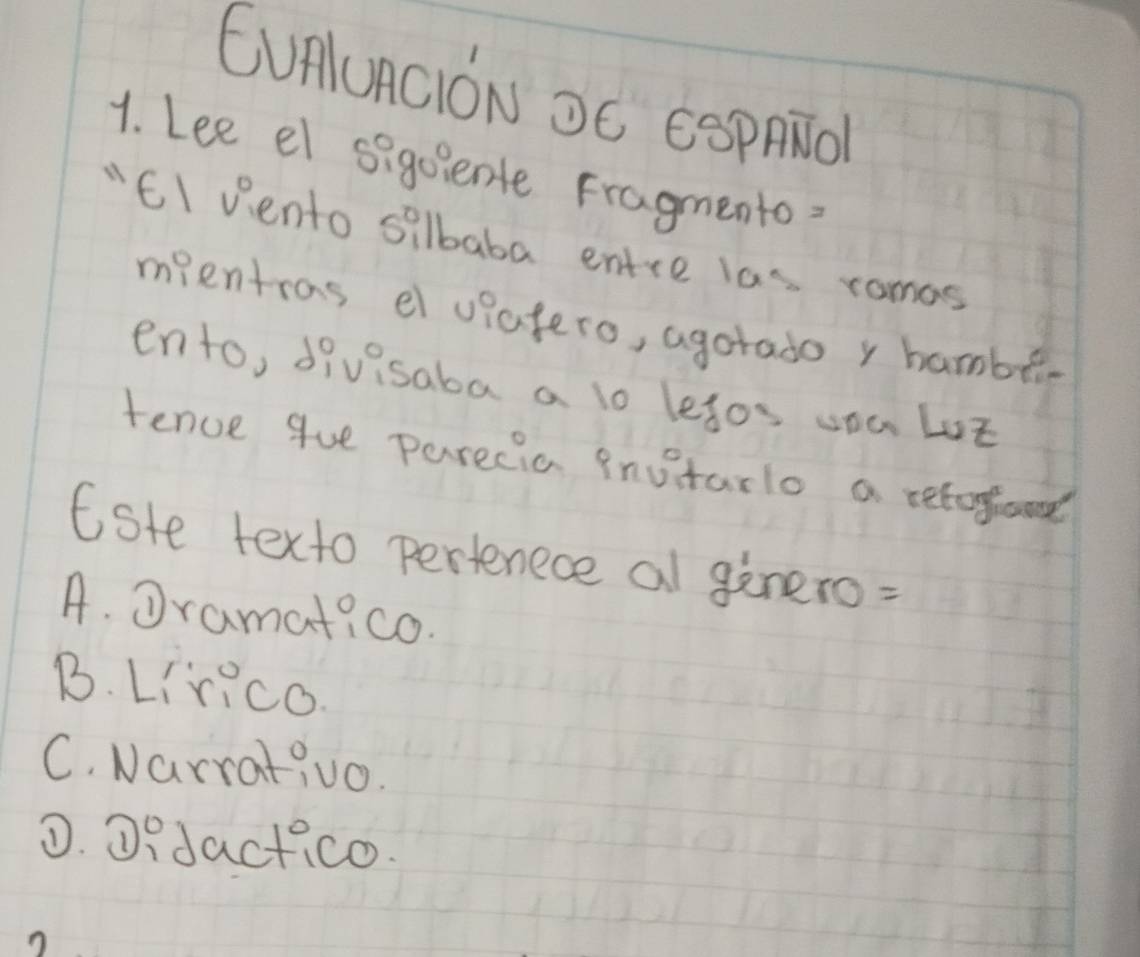 EVALUACIÓN DE ESPAÑOL
1. Lee el siguiente Fragmento=
"El viento silbaba entre las ramas
mientras el viajero, agotado y hambri-
ento, divisaba a lo lejos una Luz
tenue que parecia invitarlo a
Este texto pertenece al género=
A. Dramatico.
B. Lírico.
C. Narrativo.
D. Didactico.